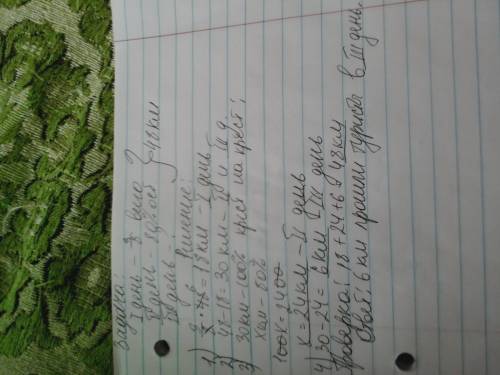 Задача:
I день - 3/8 всего
II день - 80% ост. } 48 км
III день - ?
Решение:
1) 3/8 · 48 = 18 км - I день
2) 48-18=30 км - II и III д.
3) 30 км - 100% крест на крест;
x км - 80%
100x = 2400
x = 24 км - II день
4) 30-24 = 6 км III день
Проверка: 18+24+6=48 км
Ответ: 6 км прошли туристы в III день.